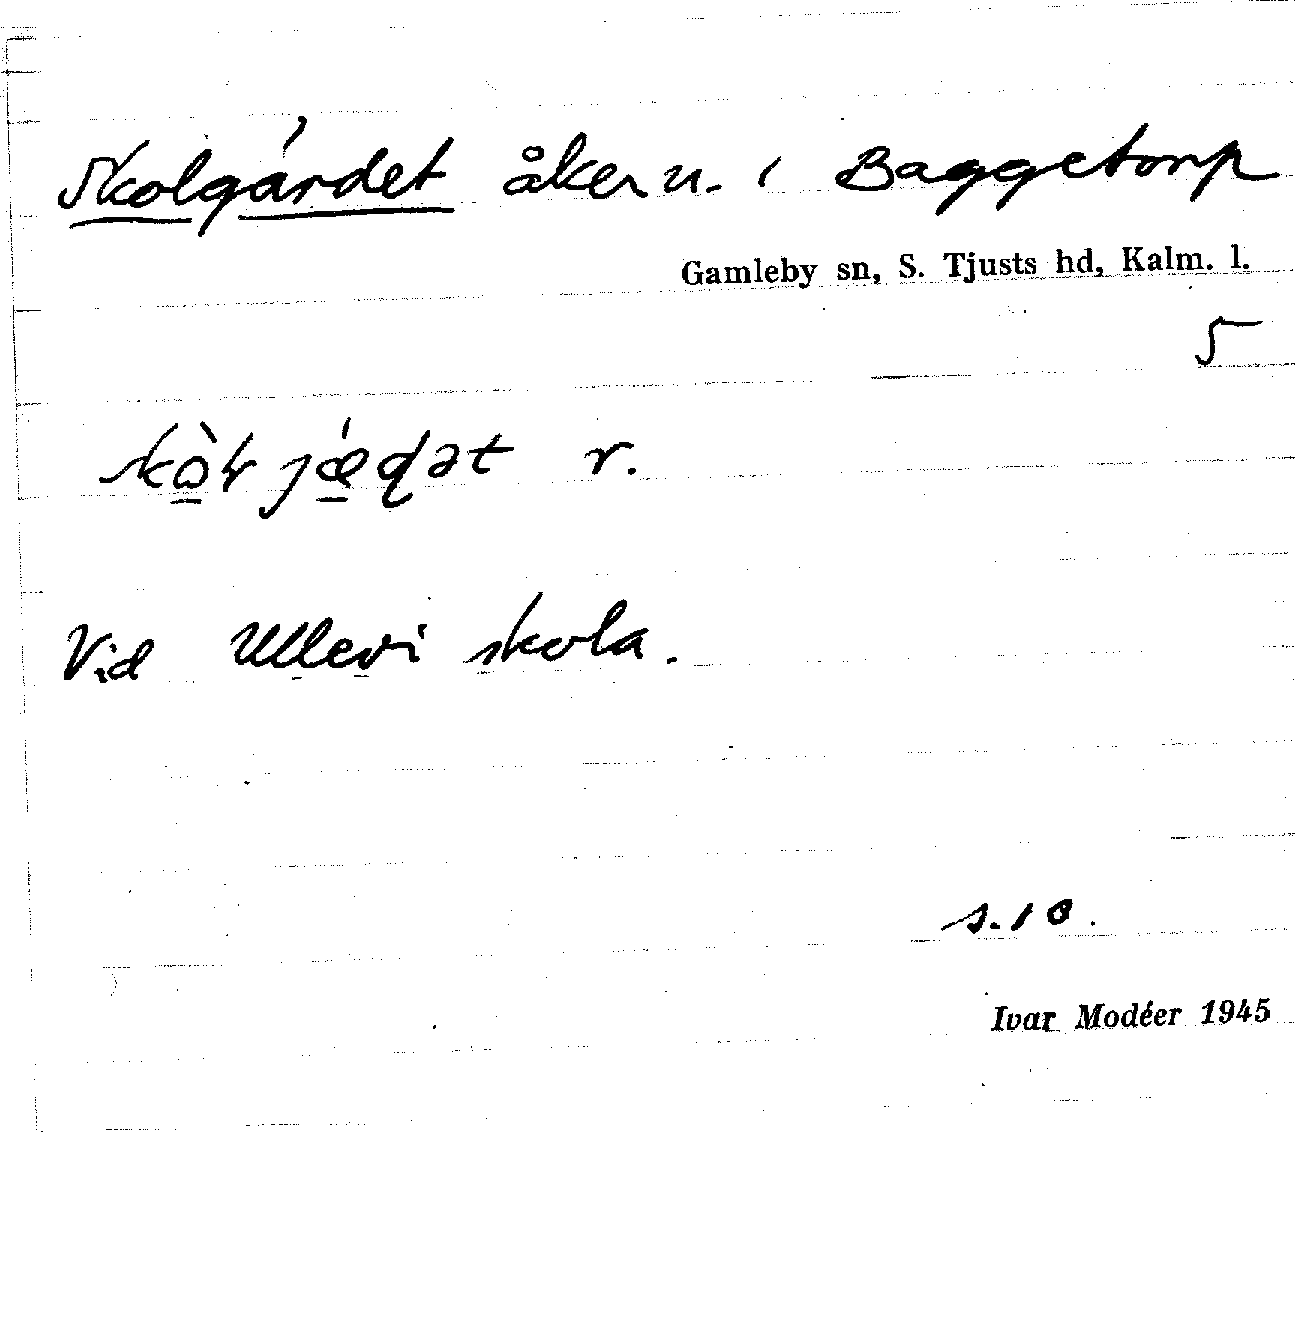 Skolgärdet åkern. i Baggetorp
Gamleby sn, S. Tjusts hd, Kalm. l.
5
r.
Vid Ullevi skola.
s. 10.
Ivar Modéer 1945